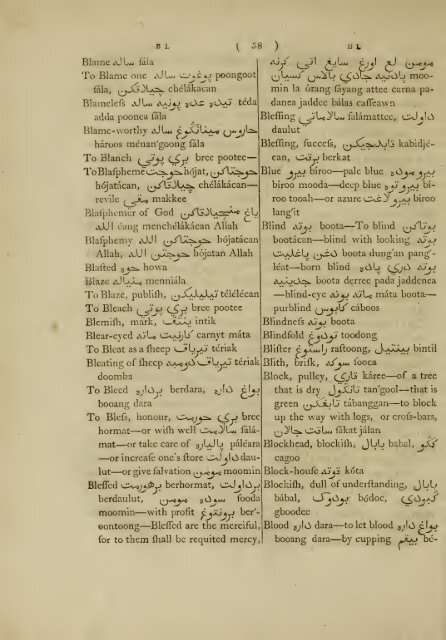 B L
( 58 )
B L
Blame ساله sála
To Blame one ساله poongoot
sála, چيلاككن chélákacan
Blameless تيده عده پونيه ساله téda
adda poonea sála
Blame-worthy ساله
hároos ménan'goong sála
To Blanch بري پوتي bree pootee—
To Blaspheme حوجت hójat, حوجتاكن
hójatácan, چيلاككن chélákacan—
revile مقي makkee
Blasphemer of God يڠ
الله éang menchélákacan Allah
Blasphemy الله حوجتاكن hójatácan
Allah, الله حوجتن hójatan Allah
Blasted howa
Blaze منياله menniála
To Blaze, publish, télélécan
To Bleach بري پوتي bree pootee
Blemish, mark, intik
Blear-eyed carnyt máta
To Bleat as a sheep تيرياق tériak
Bleating of sheep تيرياق tériak
doomba
To Bleed برداره berdara, بواڠ داره
booang dara
To Bless, honour, بري حورمت bree
hormat—or wish well سلامت sálá-
mat—or take care of páléara
—or increase one's store دولت dau-
lut—or give salvation مومن moomin
Blessed برحورمت berhormat, بردولت
berdaulut, مومن sooda
moomin—with profit برونتوڠ ber'-
oontoong—Blessed are the merciful,
for to them shall be requited mercy,
مومن لع اورڠ سايڠ اتي كرنه
پادنيه جادي بالاس كسيان moo-
min la órang sáyang attee carna pa-
danea jaddee bálas casseawn
Blessing سلامتي sálámattee, دولت
daulut
Blessing, success, kabidjé-
can, بركت berkat
Blue بيرو bíroo—pale blue بيرو موده
bíroo mooda—deep blue بيرو توه bí-
roo tooah—or azure بيرو لاڠت bíroo
lang'it
Blind بوته boota—To blind بوتاكن
bootácan—blind with looking بوته
دڠن boota dung'an pang'-
léat—born blind بوته دري پاده
جدينيه boota derree pada jaddenea
—blind-eye مات بوته máta boota—
purblind كابوس cáboos
Blindness بوته boota
Blindfold تودوڠ toodong
Blister راستوڠ rastoong, بينتيل bintil
Blith, brisk, سوكه sooca
Block, pulley, كاري káree—of a tree
that is dry تانكول tan'gool—that is
green تابڠكن tábanggan—to block
up the way with logs, or cross-bars,
ساكت جالن sákat jálan
Blockhead, blockish, بابال babal,
cagoo
Block-house كوته kóta
Blockish, dull of understanding, بابال
bábal, بودوك bódoc,
gboodee
Blood داره dara—to let blood بواڠ داره
booang dara—by cupping bé-